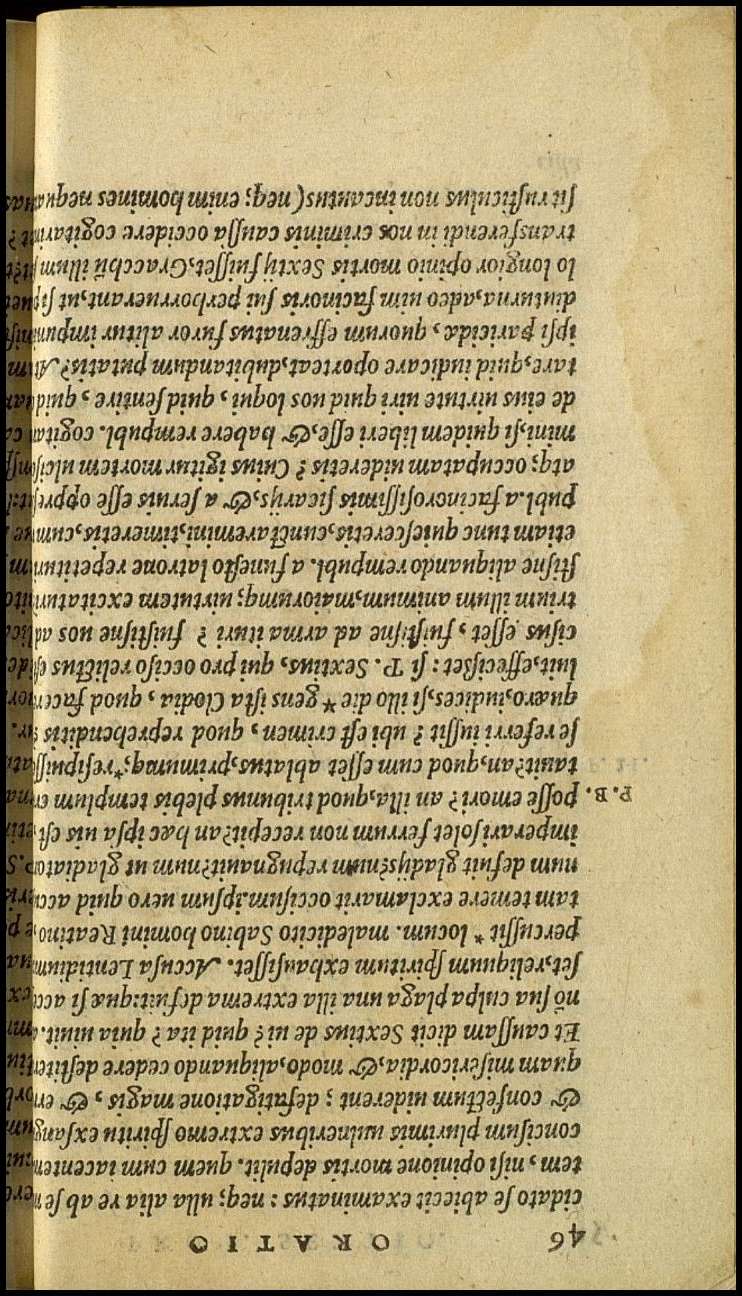 46 ORATIO
cidato se abiecit exanimatus: neq; ulla alia re ab se
tem, nisi opinione mortis depulit. quem cum iacentem
concisum plurimis uulneribus extremo spiritu
& confectum uiderent; defatigatione magis, &
quam misericordia, & modo, aliquando cedere
Et caussam dicit Sextius de ui? quid ita? quia uiuit.
nõ sua culpa plaga una illa extrema defuit: quæ si
set, reliquum spiritum exhausisset. Accusa Lentidium
percussit * locum. maledicito Sabino homini Reatino
tam temere exclamarit occisum. ipsum uero quid
num defuit gladijs? num repugnauit? num ut
imperari solet ferrum non recepit? an hæc ipsa uis est
P. B. posse emori? an illa, quod tribunus plebis templum
tauit? an, quod cum esset ablatus, primumq;
se referri iussit? ubi est crimen, quod reprehenditis
quæro, iudices, si illo die * gens ista Clodia, quod facere
luit, effecisset: si P. Sextius, qui pro occiso relictus
cisus esset, fuistisne ad arma ituri? fuistisne uos ad
trium illum animum, maiorumq; uirtutem excitaturi
stisne aliquando rempubl. a funesto latrone repetituri
etiam tunc quiesceretis, cunctaremini, timeretis, cum
publ. a facinorosissimis sicarijs, & a seruis esse
atq; occupatam uideretis? Cuius igitur mortem
mini, si quidem liberi esse, & habere rempubl.
de eius uirtute uiui quid uos loqui, quid sentire, quid
tare, quid iudicare oporteat, dubitandum putatis?
ipsi paricidæ, quorum effrenatus furor alitur
diuturna, adeo uim facinoris sui perhorruerant, ut si
lo longior opinio mortis Sextij fuisset, Gracchũ illum
transferendi in nos criminis caussa occidere
sit rusticulus non incautus (neq; enim homines